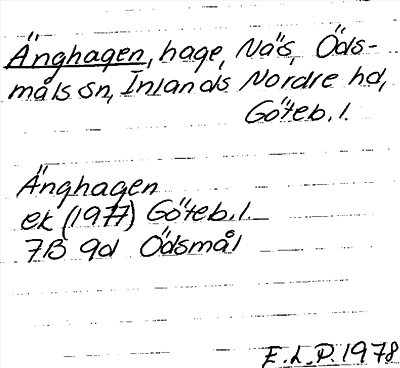 Änghagen, hage, Näs, Öds-
måls sn, Inlands Nordre hd,
Göteb. l.
Änghagen
ek (1977) Göteb. l.
7B 9d Ödsmål
E.L.P. 1978